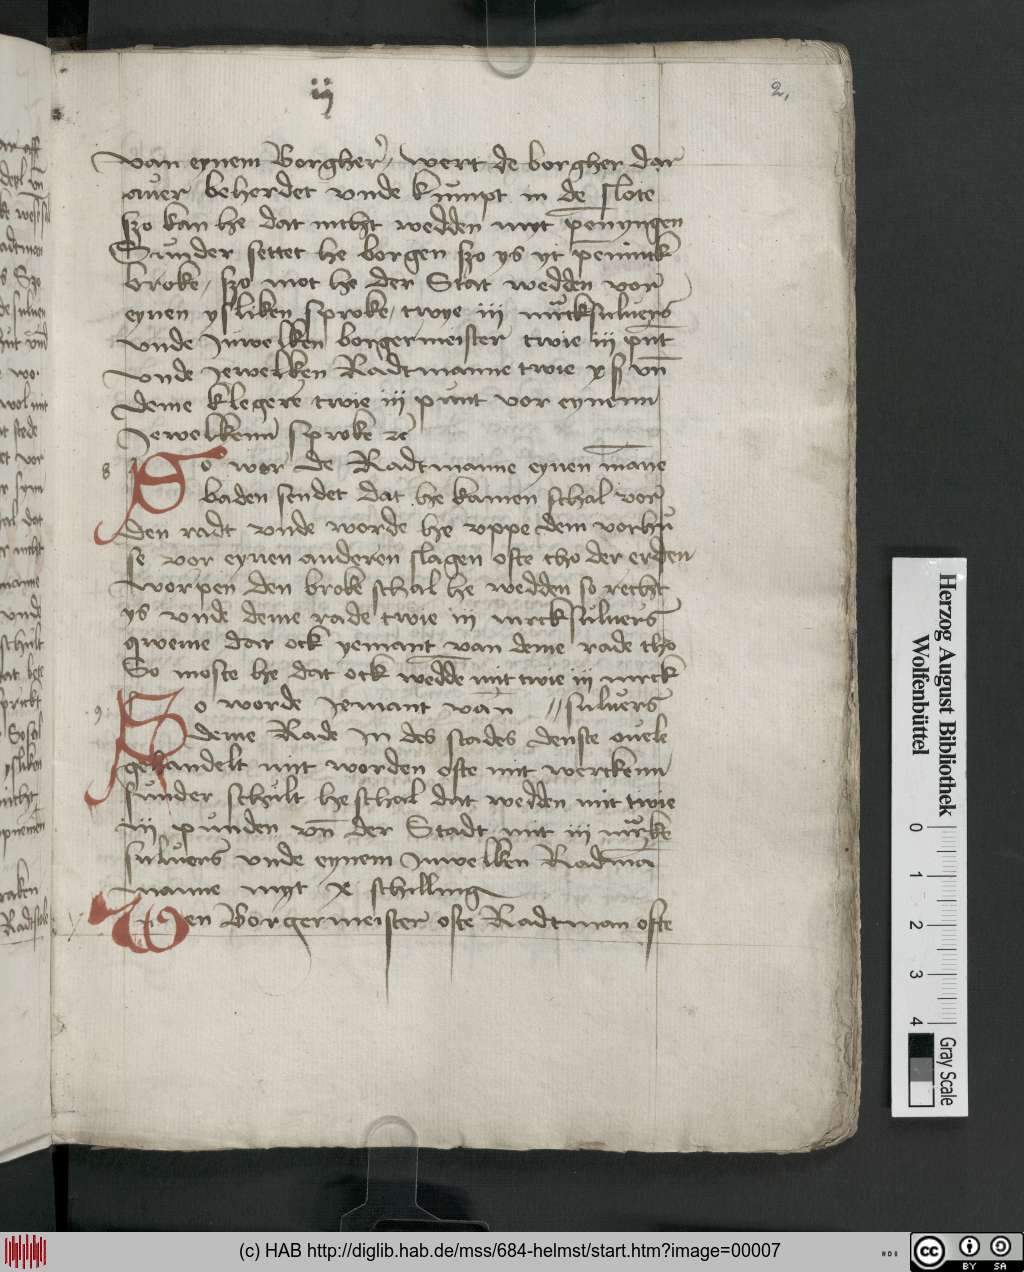 iij
2,
van eynem Borgher, wert de borgher dar
auer beherdet vnde kumpt in de slote
szo kan he dat nicht wedden myt penyngen
Sunder settet he borgen szo ys yt penninck
broke, szo mot he der Stat wedden vor
eynen ysliken sproke, twye iij mrcksuluers
vnde Juwelken borgermeister twie iij punt
vnde Jewelken Radtmanne twie x ß vn̄
deme klegere twie iij punt vor eynenn
Jewelkenn sproke ꝛc
8
So wor de Radtmanne eynen mane
baden sendet dat he kamen schal vor
den radt vnde worde he vppe dem vorhu
se vor eynen anderen slagen ofte tho der erden
worpen den broke schal he wedden so recht
ys vnde deme rade twie iij mrcksuluers
qweme dar ock yemant van deme rade tho
So moste he dat ock wedde mit twie iij mrck
9
So worde Jemant van // suluers
deme Rade Jn des stades denste ouele
gehandelt mit worden ofte mit werckenn
sunder schult he schal dat wedden mit twie
iij punden vn̄ der Stadt mit iij mrcke
suluers vnde eynem Juwelken Radma
manne myt x schilling
Wen Borgermeister ofte Radtman ofte
Herzog August Bibliothek
Wolfenbüttel
0 1 2 3 4
Gray Scale
(c) HAB http://diglib.hab.de/mss/684-helmst/start.htm?image=00007
cc BY SA